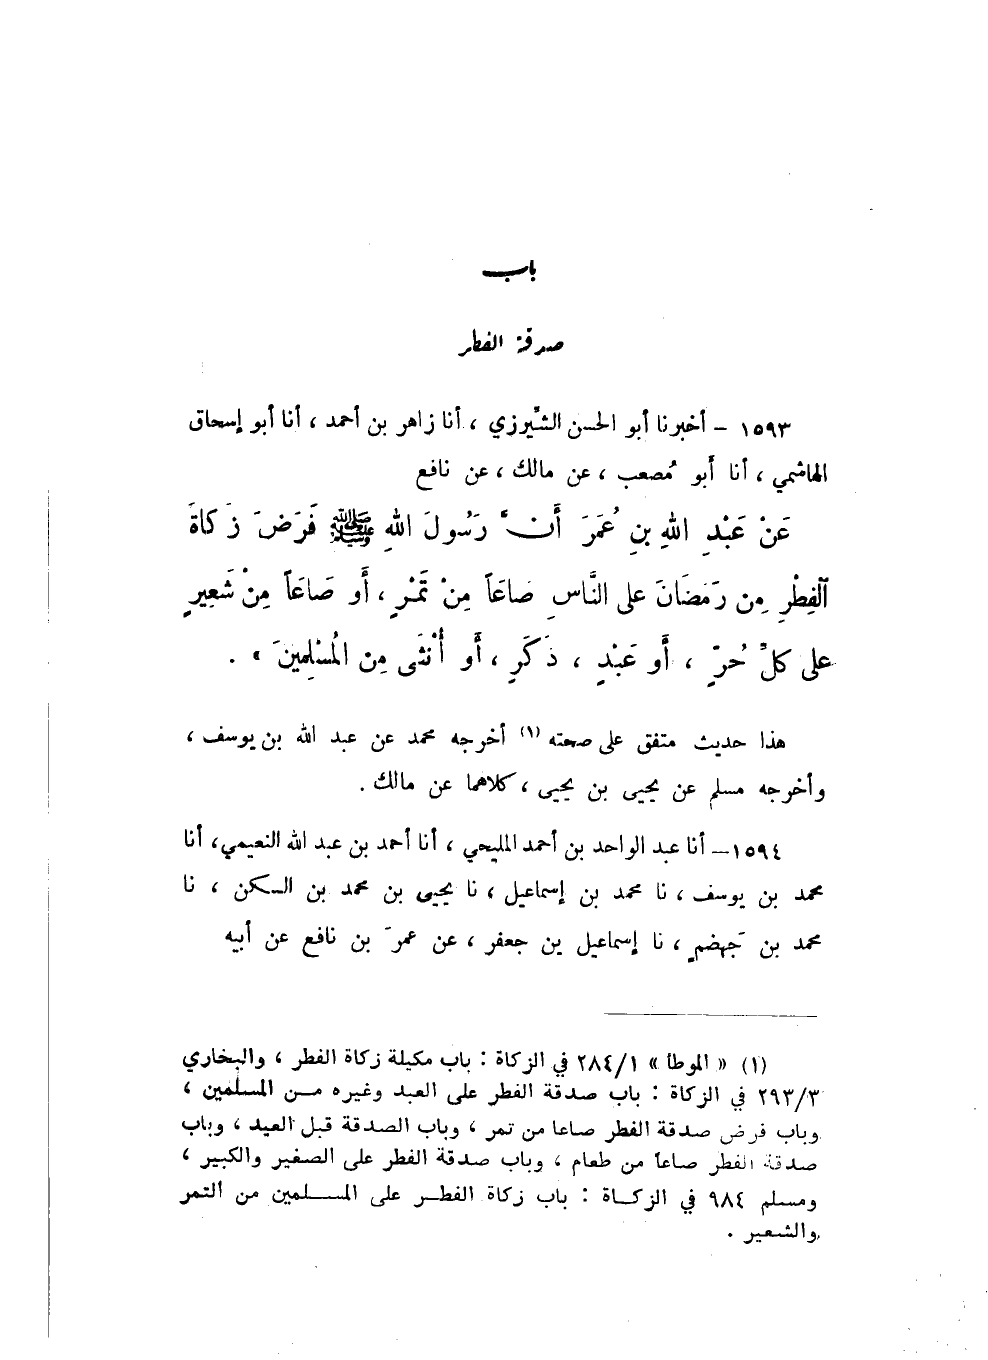 باب
صدقة الفطر
١٥٩٣ – أخبرنا أبو الحسن الشِّيرزي ، أنا زاهر بن أحمد ، أنا أبو إسحاق
الهاشمي ، أنا أبو مُصعب ، عن مالك ، عن نافع
عَنْ عَبْدِ اللهِ بنِ عُمَرَ أَنَّ رَسُولَ اللهِ ﷺ فَرَضَ زَكاةَ
الفِطْرِ مِن رَمَضَانَ على النَّاسِ صَاعَاً مِنْ تَمْرٍ ، أَو صَاعَاً مِنْ شَعِيرٍ
على كلِّ حُرٍّ ، أَو عَبْدٍ ، ذَكَرٍ ، أَو أُنْثَى مِن المُسْلِمينَ » .
هذا حديث متفق على صحته (١) أخرجه محمد عن عبد الله بن يوسف ،
وأخرجه مسلم عن يحيى بن يحيى ، كلاهما عن مالك .
١٥٩٤ – أنا عبد الواحد بن أحمد المليحي ، أنا أحمد بن عبد الله النعيمي، أنا
محمد بن يوسف ، نا محمد بن إسماعيل ، نا يحيى بن محمد بن السكن ، نا
محمد بن جَهضمٍ ، نا إسماعيل بن جعفر ، عن عمرَ بن نافع عن أبيه
(١) « الموطا » ٢٨٤/١ في الزكاة : باب مكيلة زكاة الفطر ، والبخاري
٢٩٣/٣ في الزكاة : باب صدقة الفطر على العبد وغيره من المسلمين ،
وباب فرض صدقة الفطر صاعا من تمر ، وباب الصدقة قبل العيد ، وباب
صدقة الفطر صاعاً من طعام ، وباب صدقة الفطر على الصغير والكبير ،
ومسلم ٩٨٤ في الزكاة : باب زكاة الفطر على المسلمين من التمر
والشعير .